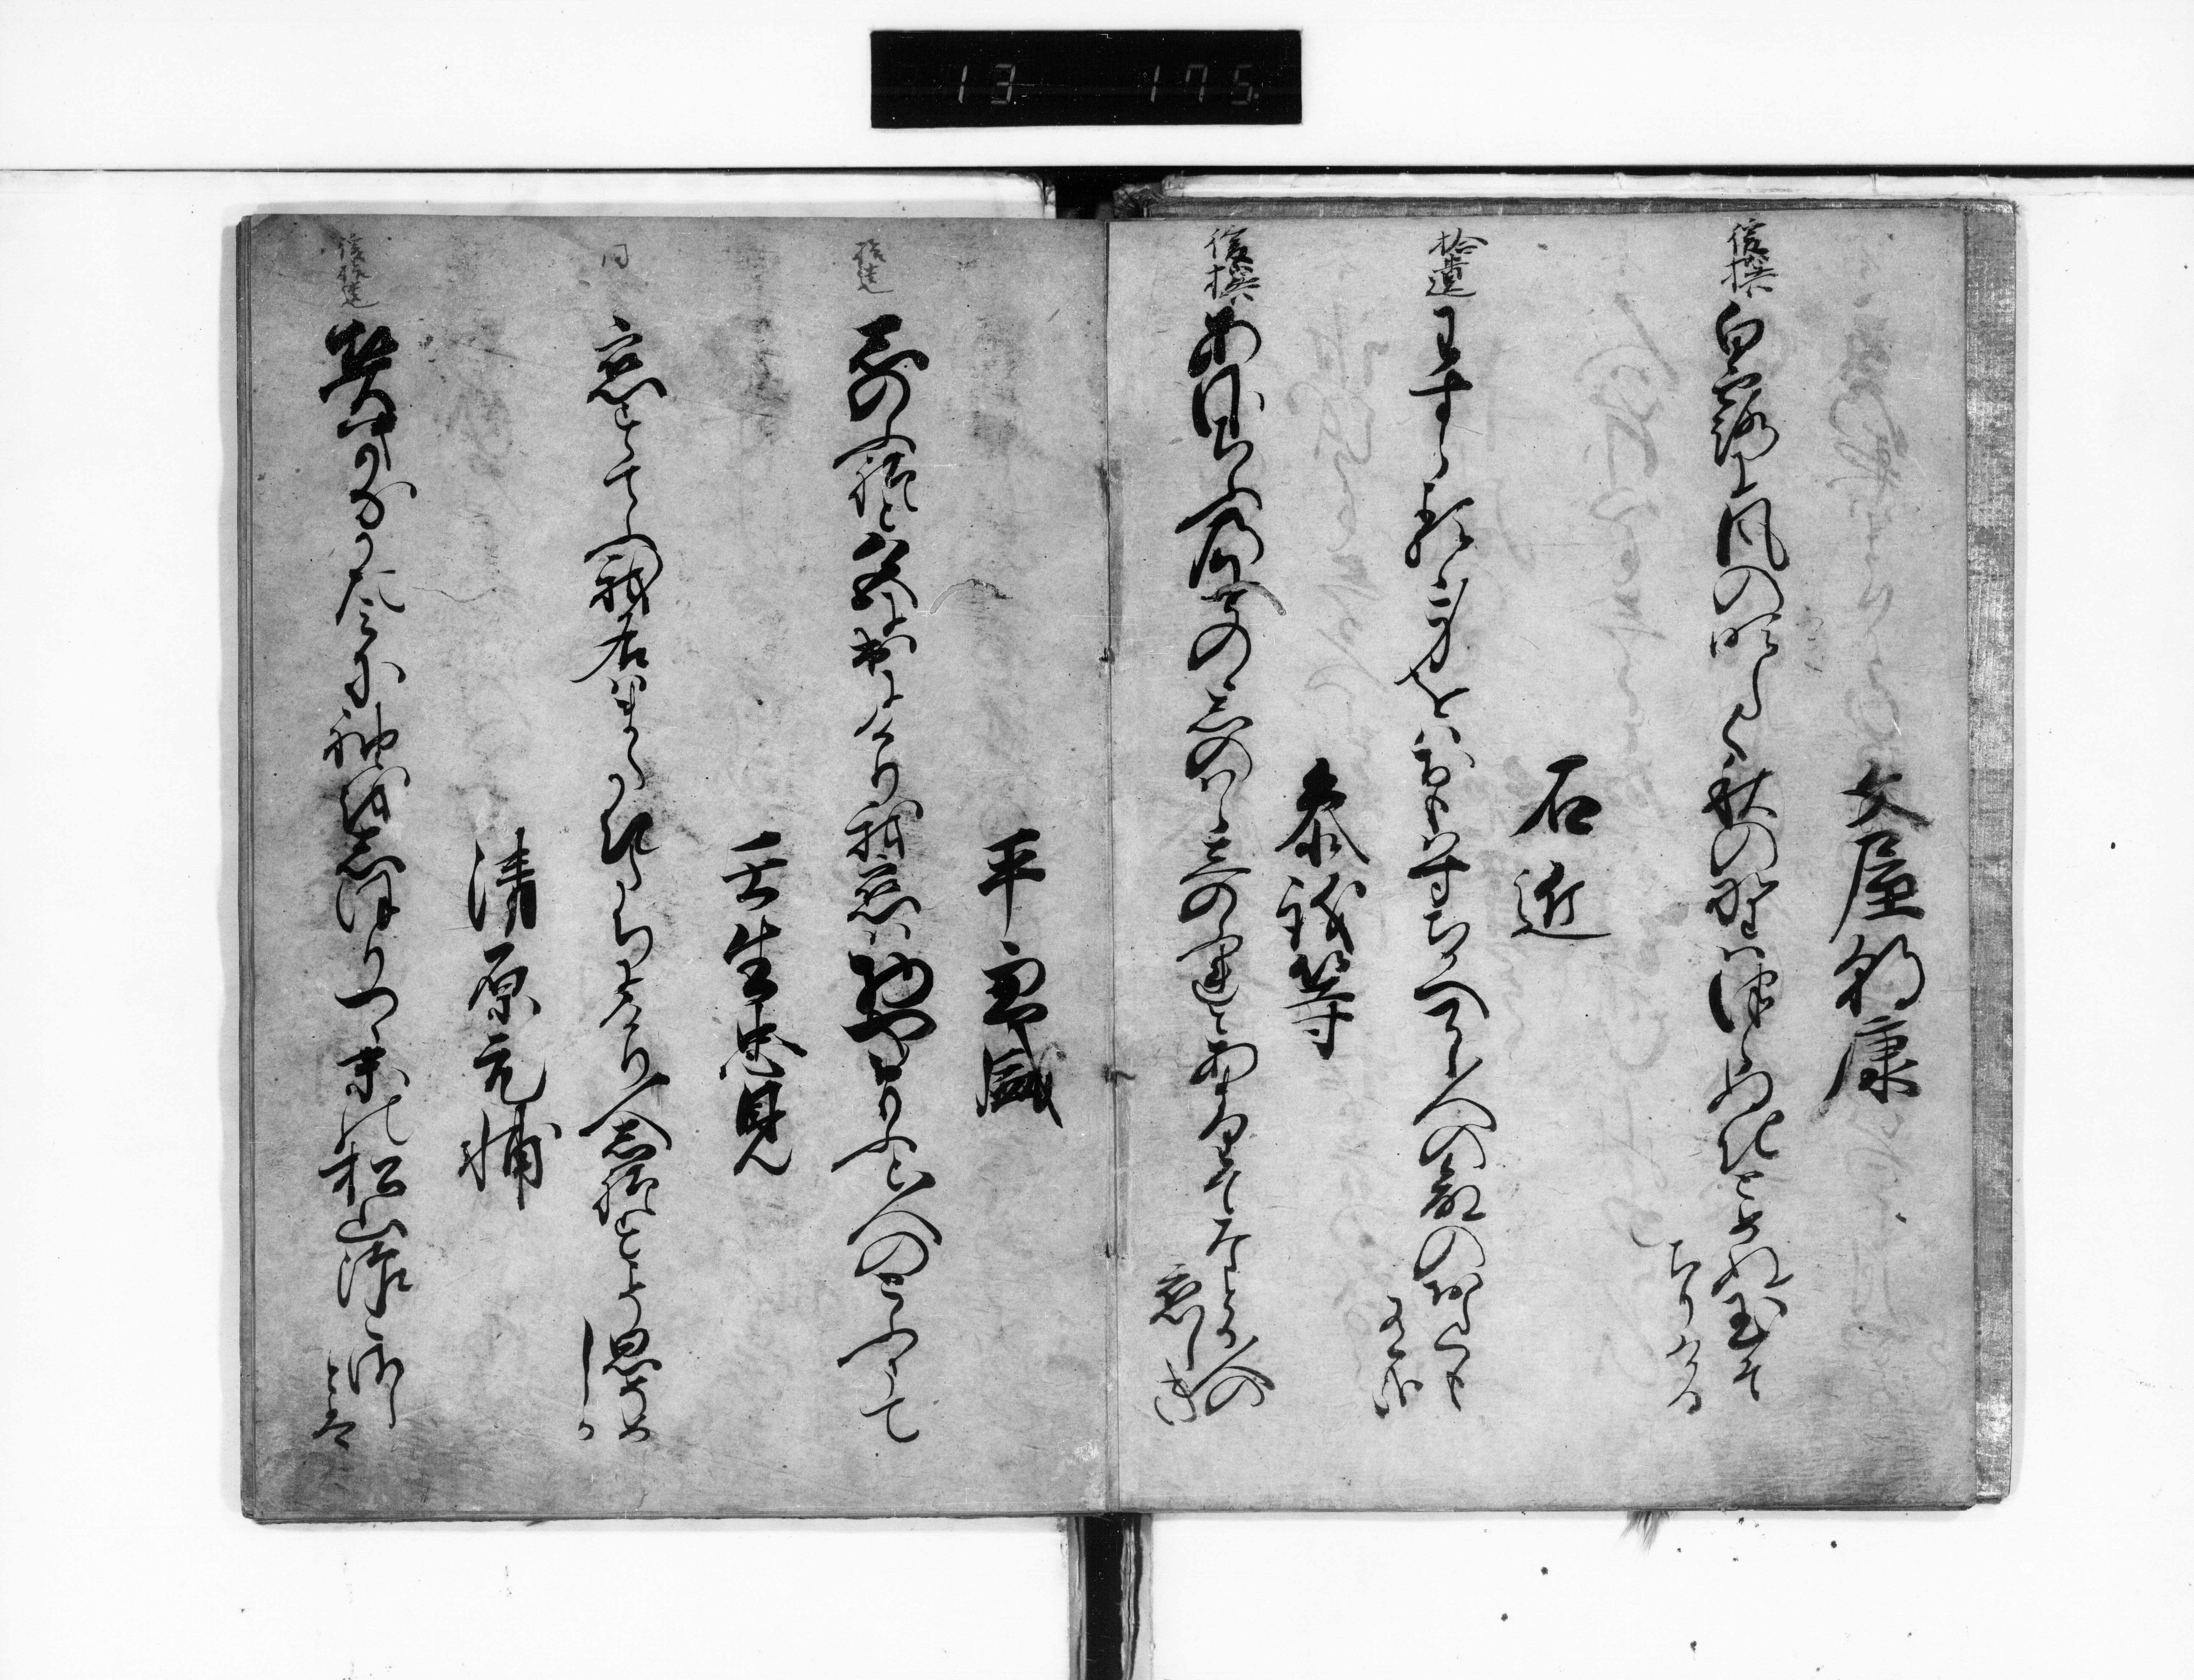 13 175
文屋朝康
後撰
白露に風の吹しく秋の野はつらぬきとめぬ玉そ
ちりける
右近
拾遺
わすらるる身をはおもはすちかひてし人の命のおしくも
有哉
参議等
後撰
あさちふの小野のしの原忍ふれとあまりてなとか人の
恋しき
平兼盛
拾遺
忍ふれと色に出にけり我恋は物やおもふと人のとふまて
壬生忠見
同
恋すてふ我名はまたき立にけり人しれすこそ思ひそめ
しか
清原元輔
後拾遺
契きなかたみに袖をしほりつゝ末の松山浪こさし
とは